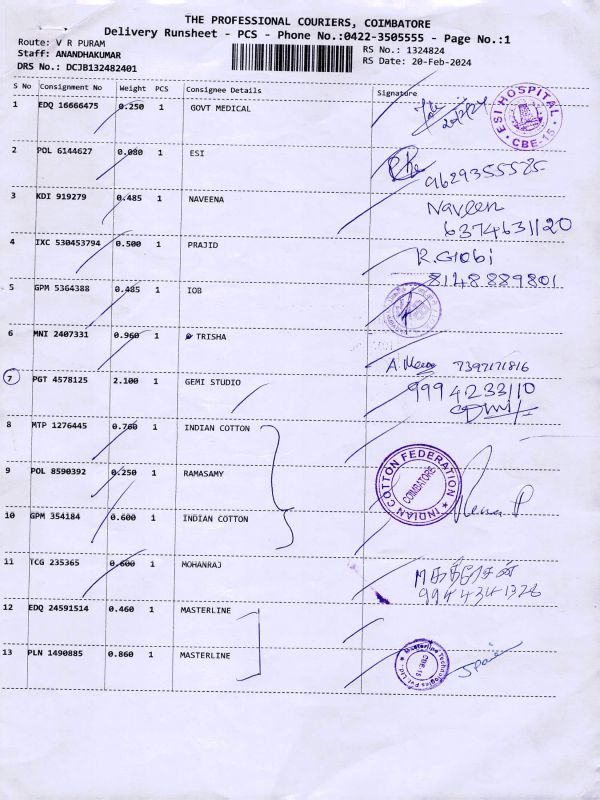 THE PROFESSIONAL COURIERS, COIMBATORE
Delivery Runsheet - PCS - Phone No.:0422-3505555 - Page No.:1
Route: V R PURAM
Staff: ANANDHAKUMAR
DRS No.: DCJB132482401
RS No.: 1324824
RS Date: 20-Feb-2024
S No Consignment No Weight PCS Consignee Details Signature
1 EDQ 16666475 0.250 1 GOVT MEDICAL
ESI HOSPITAL CBE-15
2 POL 6144627 0.080 1 ESI
9629355525
3 KDI 919279 0.485 1 NAVEENA Naveen
6374631120
4 IXC 530453794 0.500 1 PRAJID R.Giobi
8148889801
5 GPM 5364388 0.485 1 IOB
6 MNI 2407331 0.960 1 TRISHA
A. 7397171816
7 PGT 4578125 2.100 1 GEMI STUDIO 9994233110
8 MTP 1276445 0.760 1 INDIAN COTTON
INDIAN COTTON FEDERATION COIMBATORE
9 POL 8590392 0.250 1 RAMASAMY
10 GPM 354184 0.600 1 INDIAN COTTON
11 TCG 235365 0.600 1 MOHANRAJ
9944341328
12 EDQ 24591514 0.460 1 MASTERLINE
13 PLN 1490885 0.860 1 MASTERLINE
Masterline Technologies Pvt Ltd CBE-15